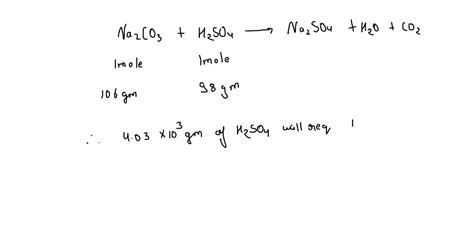 Na2CO3 + H2SO4 → Na2SO4 + H2O + CO2
1mole 1mole
106gm 98gm
∴ 4.03 ×10³ gm of H2SO4 will req 1